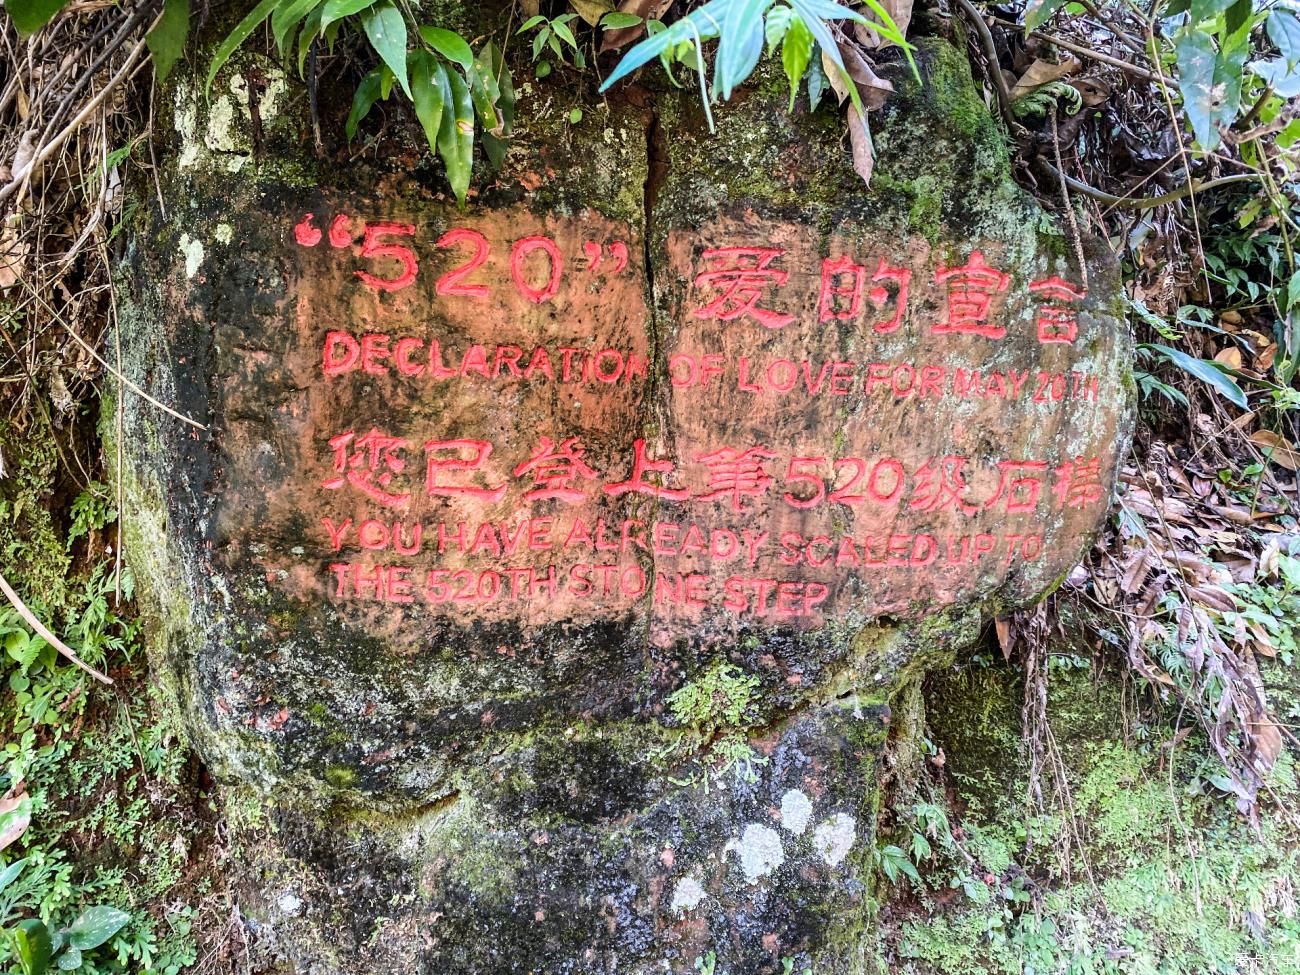 “520”爱的宣言
DECLARATION OF LOVE FOR MAY 20TH
您已登上第520级石梯
YOU HAVE ALREADY SCALED UP TO
THE 520TH STONE STEP
爱卡汽车